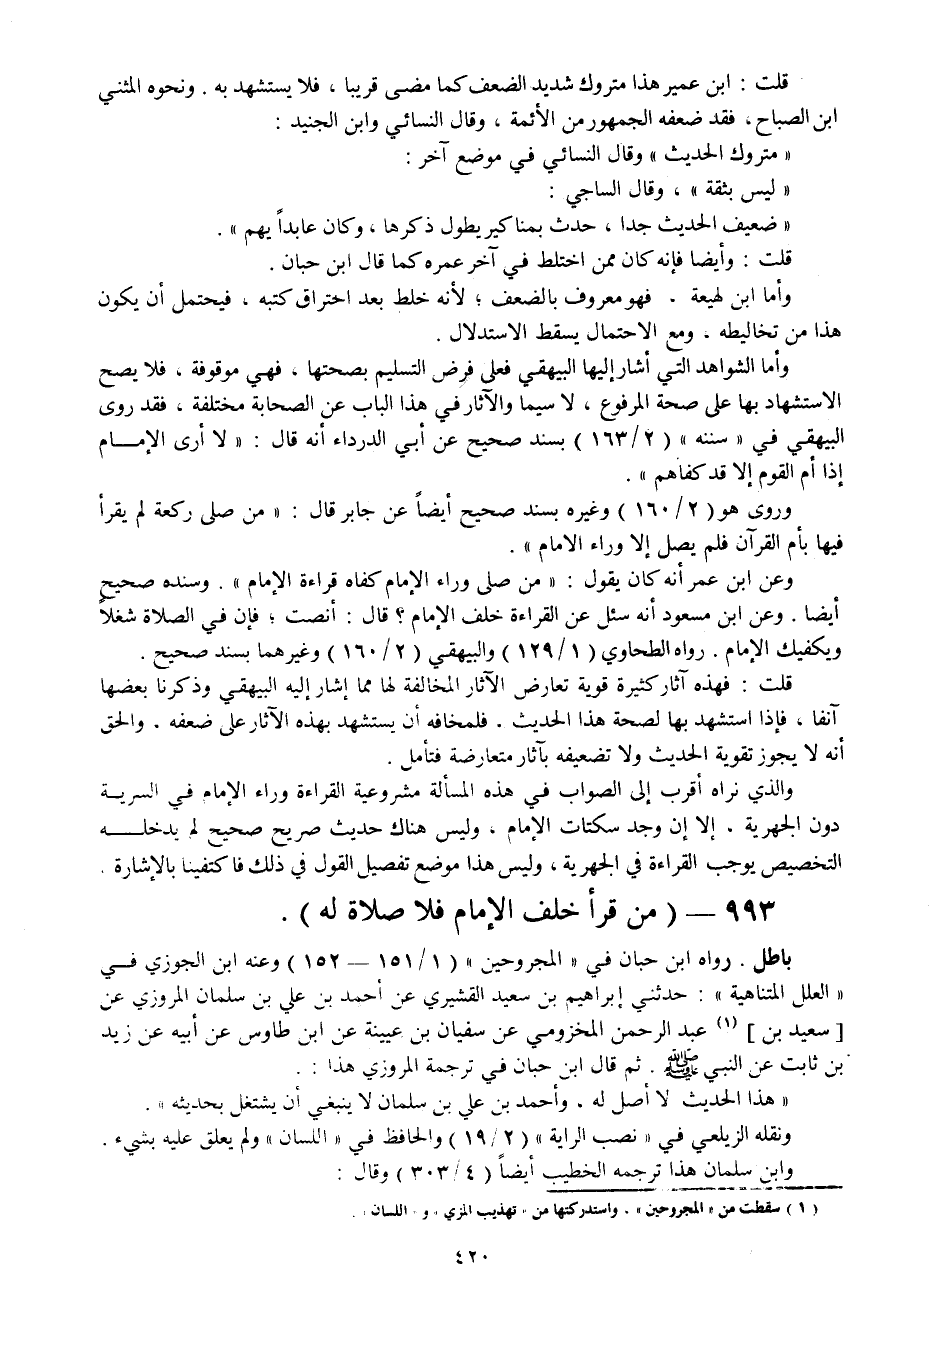 قلت : ابن عمير هذا متروك شديد الضعف كما مضى قريبا ، فلا يستشهد به . ونحوه المثنى
ابن الصباح ، فقد ضعفه الجمهور من الأئمة ، وقال النسائي وابن الجنيد :
« متروك الحديث » وقال النسائي في موضع آخر :
« ليس بثقة » ، وقال الساجي :
« ضعيف الحديث جدا ، حدث بمناكير يطول ذكرها ، وكان عابداً يهم » .
قلت : وأيضا فإنه كان ممن اختلط في آخر عمره كما قال ابن حبان .
وأما ابن لهيعة . فهو معروف بالضعف ؛ لأنه خلط بعد احتراق كتبه ، فيحتمل أن يكون
هذا من تخاليطه . ومع الاحتمال يسقط الاستدلال .
وأما الشواهد التي أشار إليها البيهقي فعلى فرض التسليم بصحتها ، فهي موقوفة ، فلا يصح
الاستشهاد بها على صحة المرفوع ، لا سيما والآثار في هذا الباب عن الصحابة مختلفة ، فقد روى
البيهقي في « سننه » ( ٢/ ١٦٣ ) بسند صحيح عن أبي الدرداء أنه قال : « لا أرى الإمـــام
إذا أم القوم إلا قد كفاهم » .
وروى هو ( ٢/ ١٦٠ ) وغيره بسند صحيح أيضاً عن جابر قال : « من صلى ركعة لم يقرأ
فيها بأم القرآن فلم يصل إلا وراء الامام » .
وعن ابن عمر أنه كان يقول : « من صلى وراء الإمام كفاه قراءة الإمام » . وسنده صحيح
أيضا . وعن ابن مسعود أنه سئل عن القراءة خلف الإمام ؟ قال : أنصت ؛ فإن في الصلاة شغلاً
ويكفيك الإمام . رواه الطحاوي ( ١/ ١٢٩ ) والبيهقي ( ٢/ ١٦٠ ) وغيرهما بسند صحيح .
قلت : فهذه آثار كثيرة قوية تعارض الآثار المخالفة لها مما إشار إليه البيهقي وذكرنا بعضها
آنفا ، فإذا استشهد بها لصحة هذا الحديث . فلمخافه أن يستشهد بهذه الآثار على ضعفه . والحق
أنه لا يجوز تقوية الحديث ولا تضعيفه بآثار متعارضة فتأمل .
والذي نراه أقرب إلى الصواب في هذه المسألة مشروعية القراءة وراء الإمام في السرية
دون الجهرية . إلا إن وجد سكتات الإمام ، وليس هناك حديث صريح صحيح لم يدخلـــه
التخصيص يوجب القراءة في الجهرية ، وليس هذا موضع تفصيل القول في ذلك فاكتفينا بالإشارة .
٩٩٣ – ( من قرأ خلف الإمام فلا صلاة له ) .
باطل . رواه ابن حبان في « المجروحين » ( ١/ ١٥١ – ١٥٢ ) وعنه ابن الجوزي فـي
« العلل المتناهية » : حدثني إبراهيم بن سعيد القشيري عن أحمد بن علي بن سلمان المروزي عن
[ سعيد بن ] (١) عبد الرحمن المخزومي عن سفيان بن عيينة عن ابن طاوس عن أبيه عن زيد
بن ثابت عن النبي ﷺ . ثم قال ابن حبان في ترجمة المروزي هذا : .
« هذا الحديث لا أصل له . وأحمد بن علي بن سلمان لا ينبغي أن يشتغل بحديثه » .
ونقله الزيلعي في « نصب الراية » ( ٢/ ١٩ ) والحافظ في « اللسان » ولم يعلق عليه بشيء .
وابن سلمان هذا ترجمه الخطيب أيضاً ( ٤/ ٣٠٣ ) وقال :
( ١ ) سقطت من « المجروحين » . واستدركتها من « تهذيب المزي » و « اللسان » .
٤٢٠